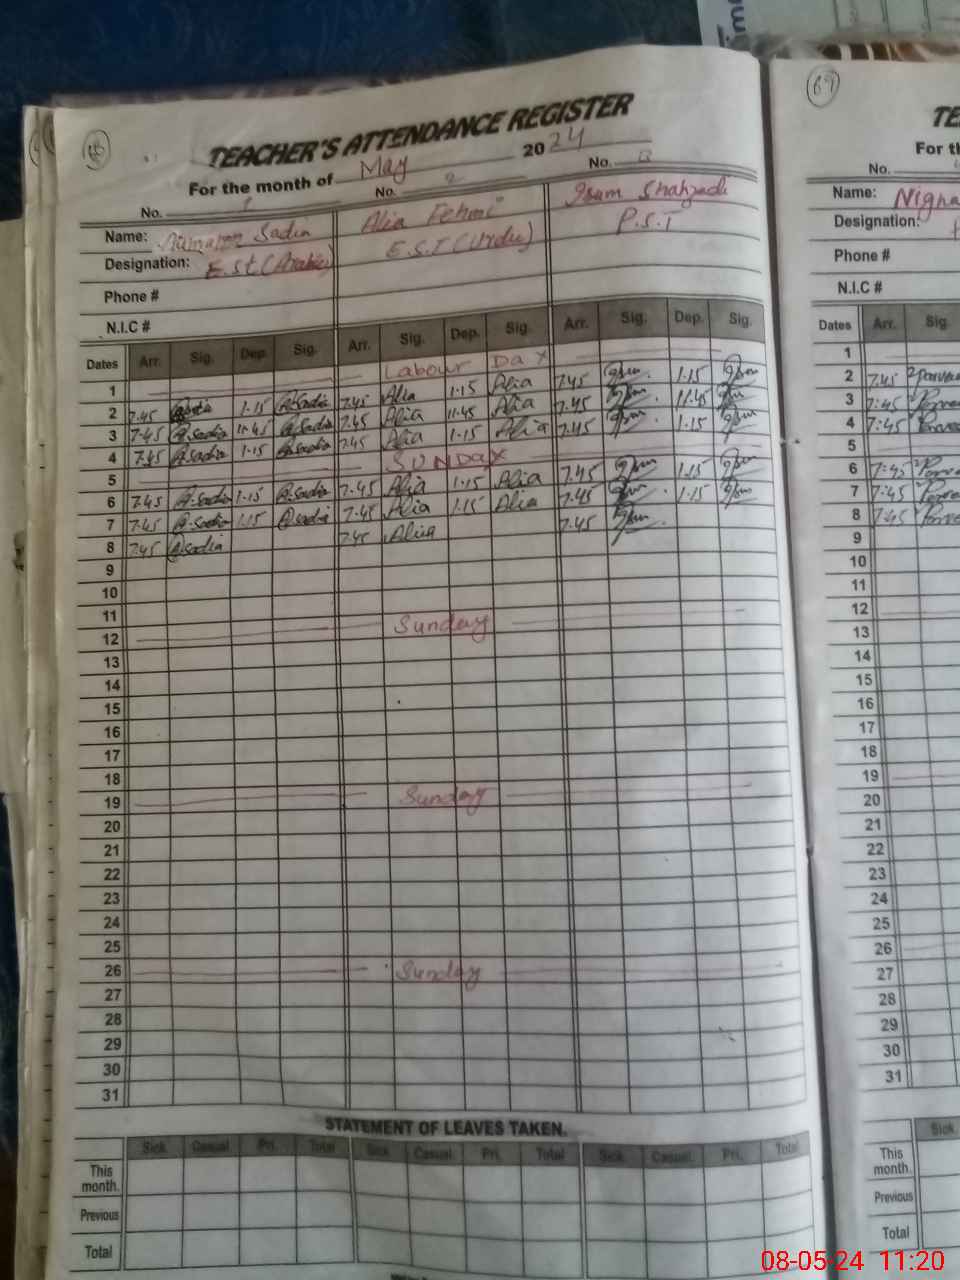 TEACHER'S ATTENDANCE REGISTER
For the month of May 2024
No. 1 No. 2 No.
Name: Sadia Alia Fehmi Shahzadi
Designation: E.S.t (Arabic) E.S.T (Urdu) P.S.T
Phone #
N.I.C #
Dates Arr. Sig. Dep. Sig. Arr. Sig. Dep. Sig. Arr. Sig. Dep. Sig.
1 Labour Day
2 7.45 1.15 @.Sadia 7.45 Alia 1.15 Alia 7.45 1.15
3 7.45 @.Sadia 11.45 @.Sadia 7.45 Alia 11.45 Alia 7.45 11.45
4 7.45 @.Sadia 1.15 @.Sadia 7.45 Alia 1.15 Alia 7.45 1.15
5 SUNDAY
6 7.45 @.Sadia 1.15 @.Sadia 7.45 Alia 1.15 Alia 7.45 1.15
7 7.45 @.Sadia 1.15 @Sadia 7.45 Alia 1.15 Alia 7.45 1.15
8 7.45 @Sadia 7.45 Alia 7.45
9
10
11
12 Sunday
13
14
15
16
17
18
19 Sunday
20
21
22
23
24
25
26 Sunday
27
28
29
30
31
STATEMENT OF LEAVES TAKEN.
Sick Casual Pri. Total Sick Casual Pri. Total Sick Casual Pri. Total
This month.
Previous
Total
69
TE
For th
No.
Name:
Designation:
Phone #
N.I.C #
Dates Arr. Sig.
1
2 7.45
3 7:45
4 7:45
5
6 7:45
7 7:45
8 7:45
9
10
11
12
13
14
15
16
17
18
19
20
21
22
23
24
25
26
27
28
29
30
31
Sick
This month.
Previous
Total
08-05-24 11:20